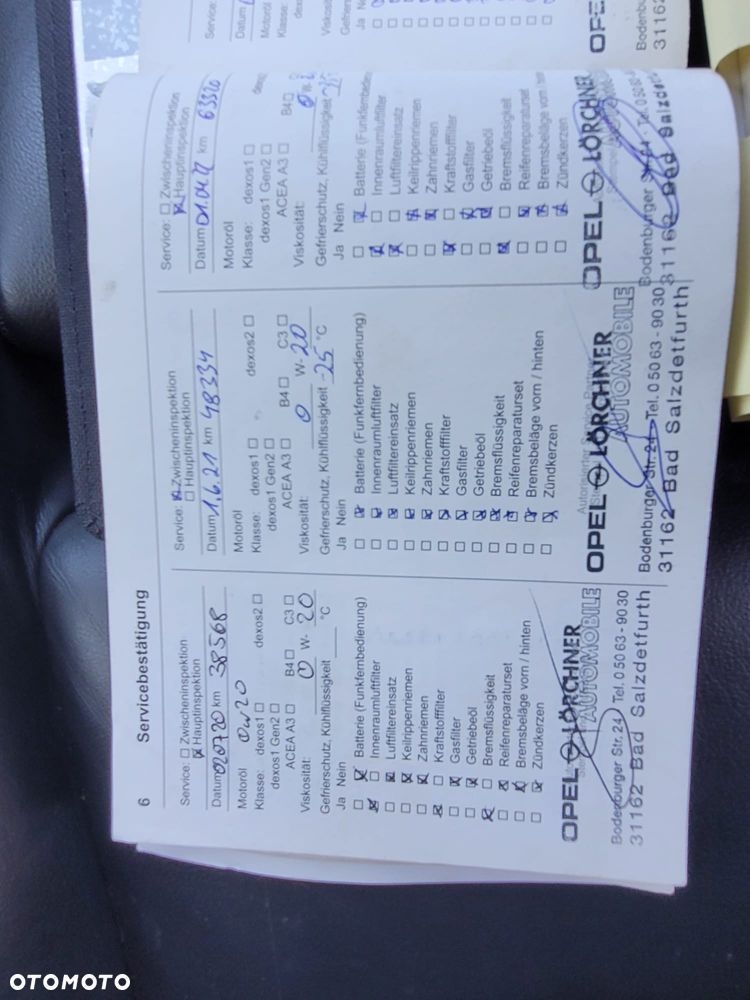 6 Servicebestätigung
Service: Zwischeninspektion
Hauptinspektion
Datum 020720 km 38568
Motoröl 0w20
Klasse: dexos1 dexos2
dexos1 Gen2
ACEA A3 B4 C3
Viskosität: 0 W- 20
Gefrierschutz, Kühlflüssigkeit °C
Ja Nein
Batterie (Funkfernbedienung)
Innenraumluftfilter
Luftfiltereinsatz
Keilrippenriemen
Zahnriemen
Kraftstofffilter
Gasfilter
Getriebeöl
Bremsflüssigkeit
Reifenreparaturset
Bremsbeläge vorn / hinten
Zündkerzen
OPEL LÖRCHNER
AUTOMOBILE
Bodenburger Str. 24 Tel. 0 50 63 - 90 30
31162 Bad Salzdetfurth
Service: Zwischeninspektion
Hauptinspektion
Datum 1.6.21 km 48334
Motoröl
Klasse: dexos1 dexos2
dexos1 Gen2
ACEA A3 B4 C3
Viskosität: 0 W- 20
Gefrierschutz, Kühlflüssigkeit -25 °C
Ja Nein
Batterie (Funkfernbedienung)
Innenraumluftfilter
Luftfiltereinsatz
Keilrippenriemen
Zahnriemen
Kraftstofffilter
Gasfilter
Getriebeöl
Bremsflüssigkeit
Reifenreparaturset
Bremsbeläge vorn / hinten
Zündkerzen
Autorisierter Service Partner
OPEL LÖRCHNER
AUTOMOBILE
Bodenburger Str. 24 Tel. 0 50 63 - 90 30
31162 Bad Salzdetfurth
Service: Zwischeninspektion
Hauptinspektion
Datum km 63320
Motoröl
Klasse: dexos1
dexos1 Gen2
ACEA A3 B4
Viskosität: 0 W-
Gefrierschutz, Kühlflüssigkeit
Ja Nein
Batterie
Innenraumluftfilter
Luftfiltereinsatz
Keilrippenriemen
Zahnriemen
Kraftstofffilter
Gasfilter
Getriebeöl
Bremsflüssigkeit
Reifenreparaturset
Bremsbeläge vorn
Zündkerzen
OPEL LÖRCHNER
Bodenburger Str. 24 Tel.
31162 Bad Salzdetfu
Service:
Datum
Motoröl
Klasse:
OPE
3116
OTOMOTO